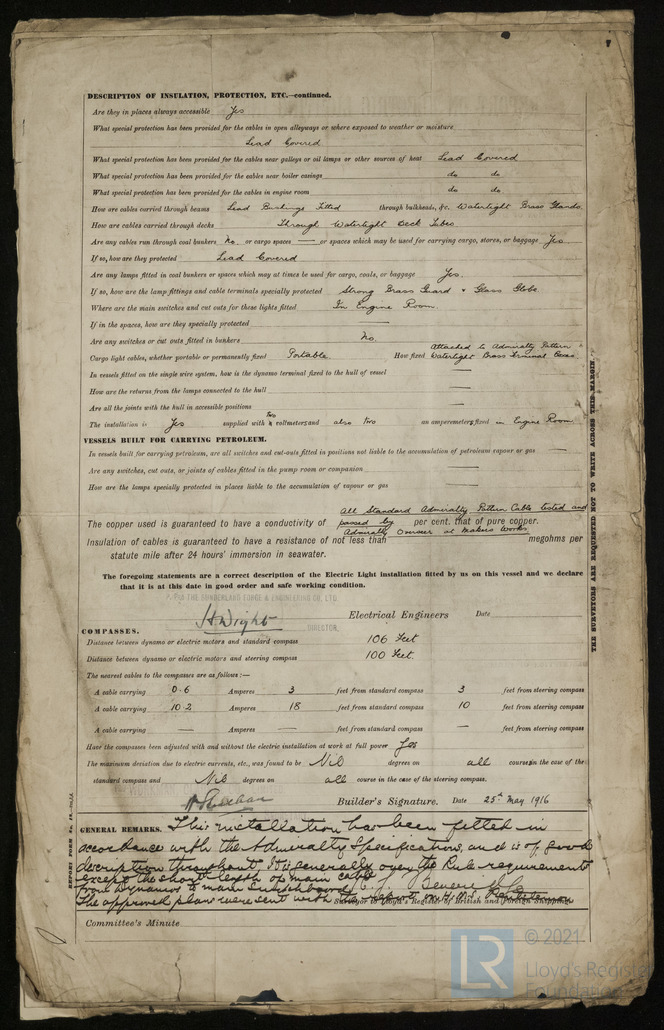 7
DESCRIPTION OF INSULATION, PROTECTION, ETC.—continued.
Are they in places always accessible Yes
What special protection has been provided for the cables in open alleyways or where exposed to weather or moisture
Lead Covered
What special protection has been provided for the cables near galleys or oil lamps or other sources of heat Lead Covered
What special protection has been provided for the cables near boiler casings do do
What special protection has been provided for the cables in engine room do do
How are cables carried through beams Lead Bushings Fitted through bulkheads, &c. Watertight Brass Glands
How are cables carried through decks Through Watertight Deck Tubes
Are any cables run through coal bunkers No or cargo spaces — or spaces which may be used for carrying cargo, stores, or baggage Yes
If so, how are they protected Lead Covered
Are any lamps fitted in coal bunkers or spaces which may at times be used for cargo, coals, or baggage Yes.
If so, how are the lamp fittings and cable terminals specially protected Strong Brass Guard & Glass Globe
Where are the main switches and cut outs for these lights fitted In Engine Room.
If in the spaces, how are they specially protected —
Are any switches or cut outs fitted in bunkers No.
Cargo light cables, whether portable or permanently fixed Portable How fixed Attached to Admiralty Pattern Watertight Brass Terminal Boxes.
In vessels fitted on the single wire system, how is the dynamo terminal fixed to the hull of vessel —
How are the returns from the lamps connected to the hull —
Are all the joints with the hull in accessible positions —
The installation is Yes supplied with Two voltmeters and also two an amperemeters fixed in Engine Room
VESSELS BUILT FOR CARRYING PETROLEUM.
In vessels built for carrying petroleum, are all switches and cut-outs fitted in positions not liable to the accumulation of petroleum vapour or gas —
Are any switches, cut outs, or joints of cables fitted in the pump room or companion —
How are the lamps specially protected in places liable to the accumulation of vapour or gas —
All Standard Admiralty Pattern Cable tested and
The copper used is guaranteed to have a conductivity of passed by per cent. that of pure copper.
Admiralty Overseer at Makers Works.
Insulation of cables is guaranteed to have a resistance of not less than megohms per
statute mile after 24 hours' immersion in seawater.
The foregoing statements are a correct description of the Electric Light installation fitted by us on this vessel and we declare
that it is at this date in good order and safe working condition.
THE SUNDERLAND FORGE & ENGINEERING CO. LTD.
Wright DIRECTOR. Electrical Engineers Date
COMPASSES.
Distance between dynamo or electric motors and standard compass 106 Feet
Distance between dynamo or electric motors and steering compass 100 Feet.
The nearest cables to the compasses are as follows:—
A cable carrying 0.6 Amperes 3 feet from standard compass 3 feet from steering compass
A cable carrying 10.2 Amperes 18 feet from standard compass 10 feet from steering compass
A cable carrying — Amperes — feet from standard compass — feet from steering compass
Have the compasses been adjusted with and without the electric installation at work at full power Yes
The maximum deviation due to electric currents, etc., was found to be Nil degrees on all course in the case of the
standard compass and Nil degrees on all course in the case of the steering compass.
Builder's Signature. Date 25th May 1916
GENERAL REMARKS. This installation has been fitted in
accordance with the Admiralty Specifications, and is of good
description throughout, It is generally over the Rule requirements
except the short length of main cable
from Dynamos to main Switchboard
The approved plans were sent with the report on
Surveyor to Lloyd's Register of British and Foreign Shipping
Committee's Minute
THE SURVEYORS ARE REQUESTED NOT TO WRITE ACROSS THIS MARGIN.
© 2021
LR
Lloyd's Register
Foundation